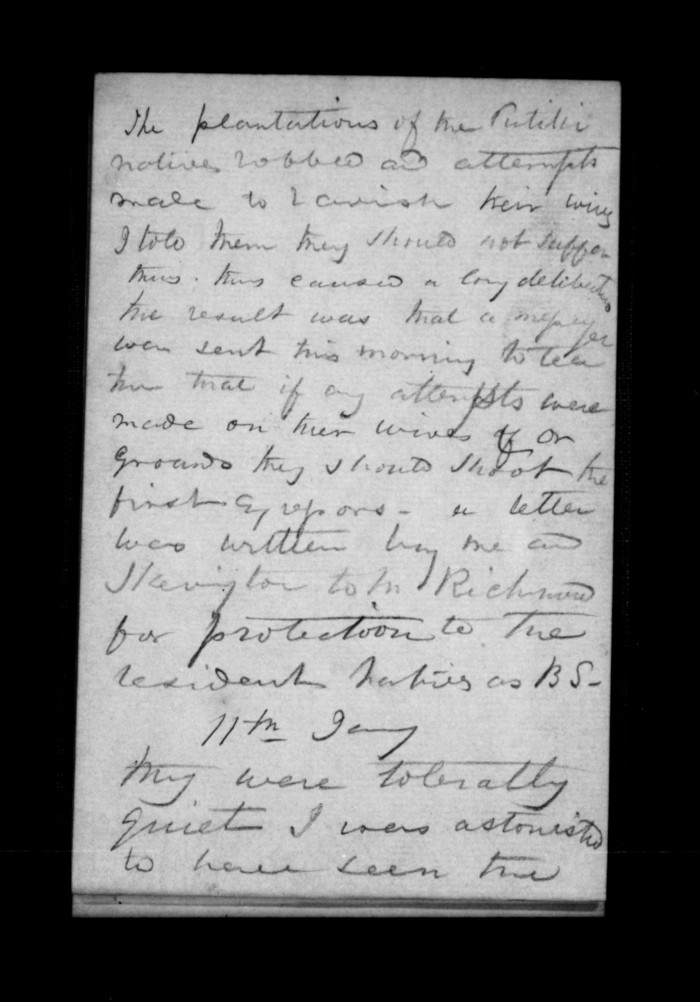 The plantations of the Putiki
natives robbed and attempts
made to ravish their wives
I told them they should not suffer
this. this caused a long deliberation
the result was that a messenger
was sent this morning to tell
them that if any attempts were
made on their wives or
grounds they should shoot the
first aggressors - a letter
was written by me and
Skevington to Mr Richmond
for protection to the
resident natives as B S -
11th Jany
They were tolerally
quiet I was astonished
to have seen the